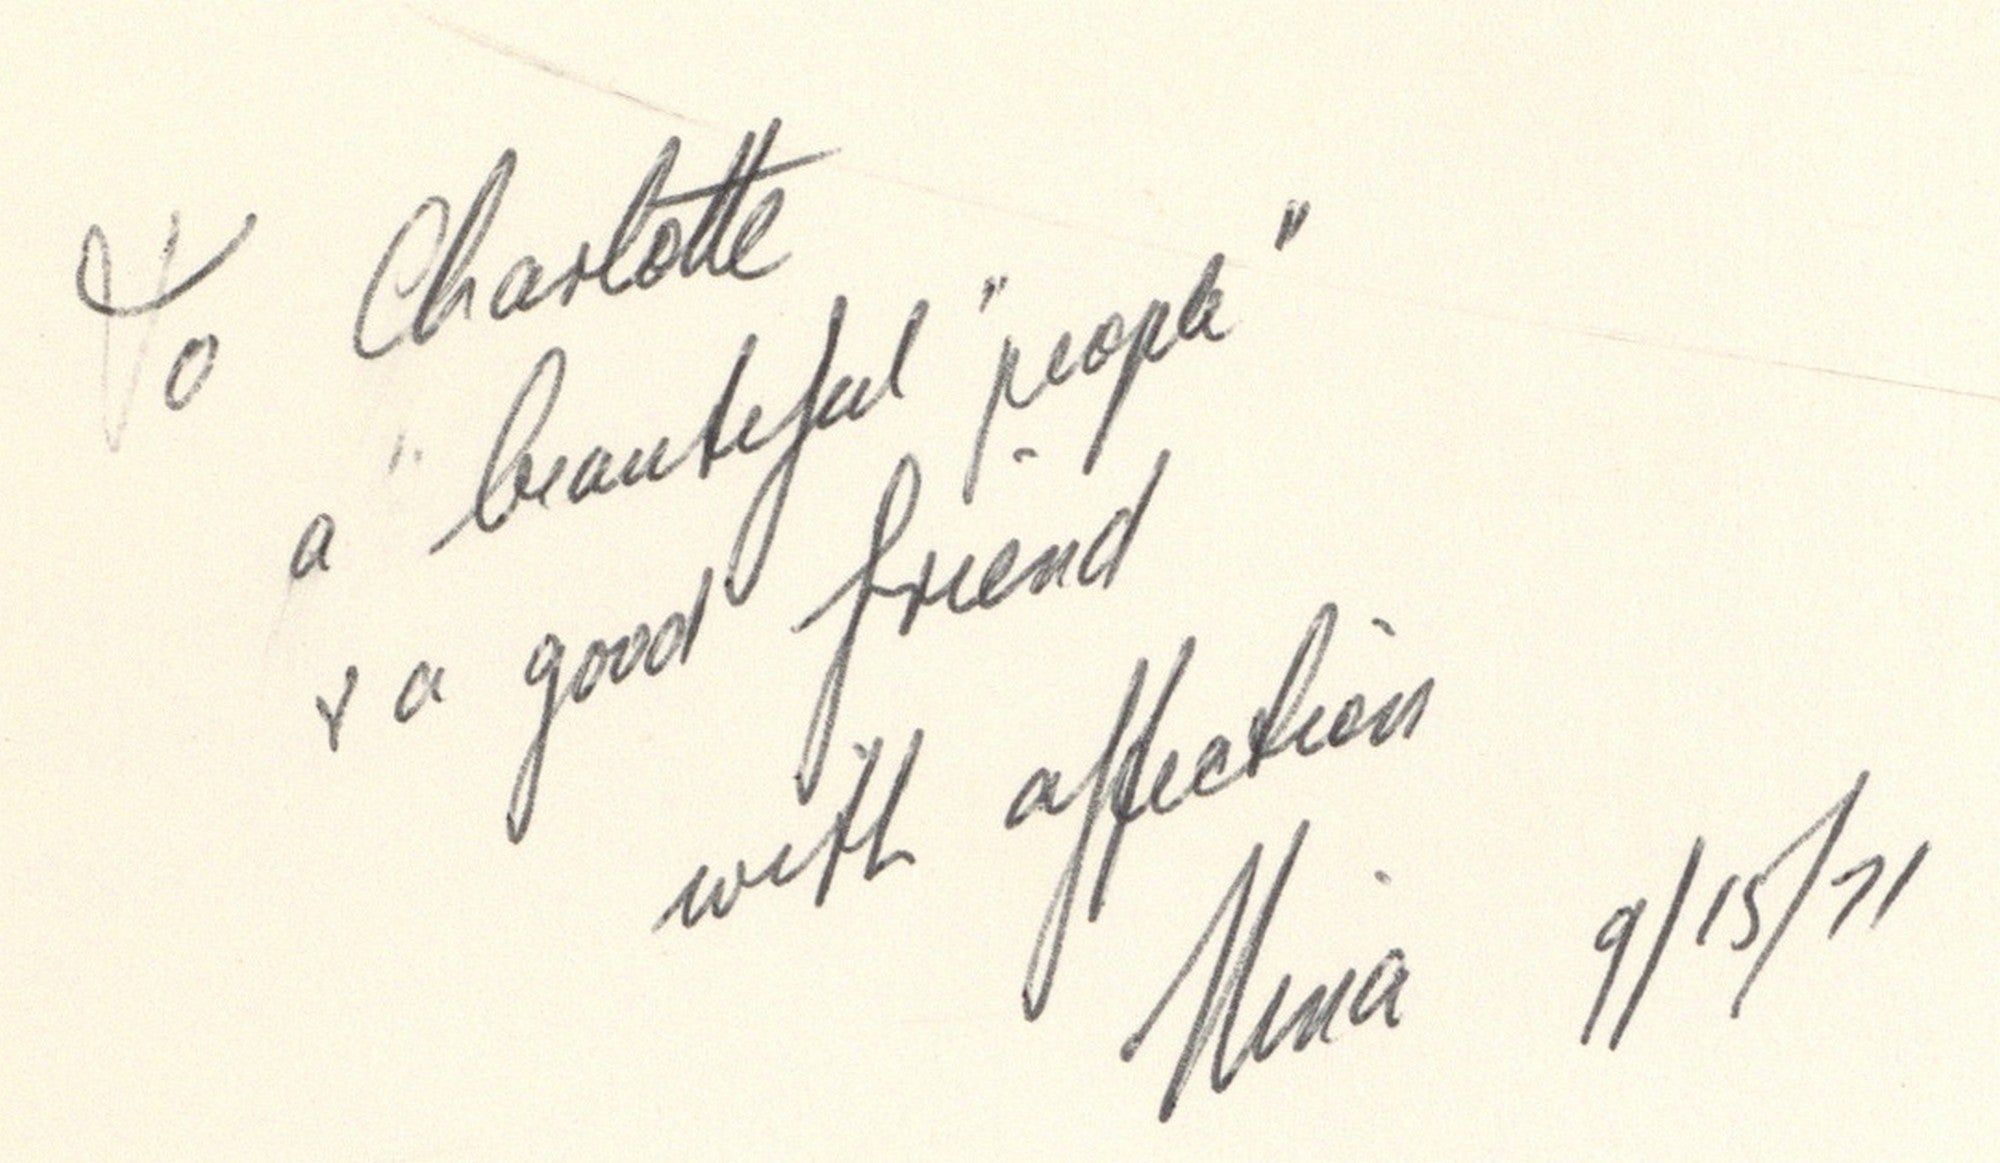 To Charlotte
a "beautiful "people"
& a good friend
with affection
Nina 9/15/71